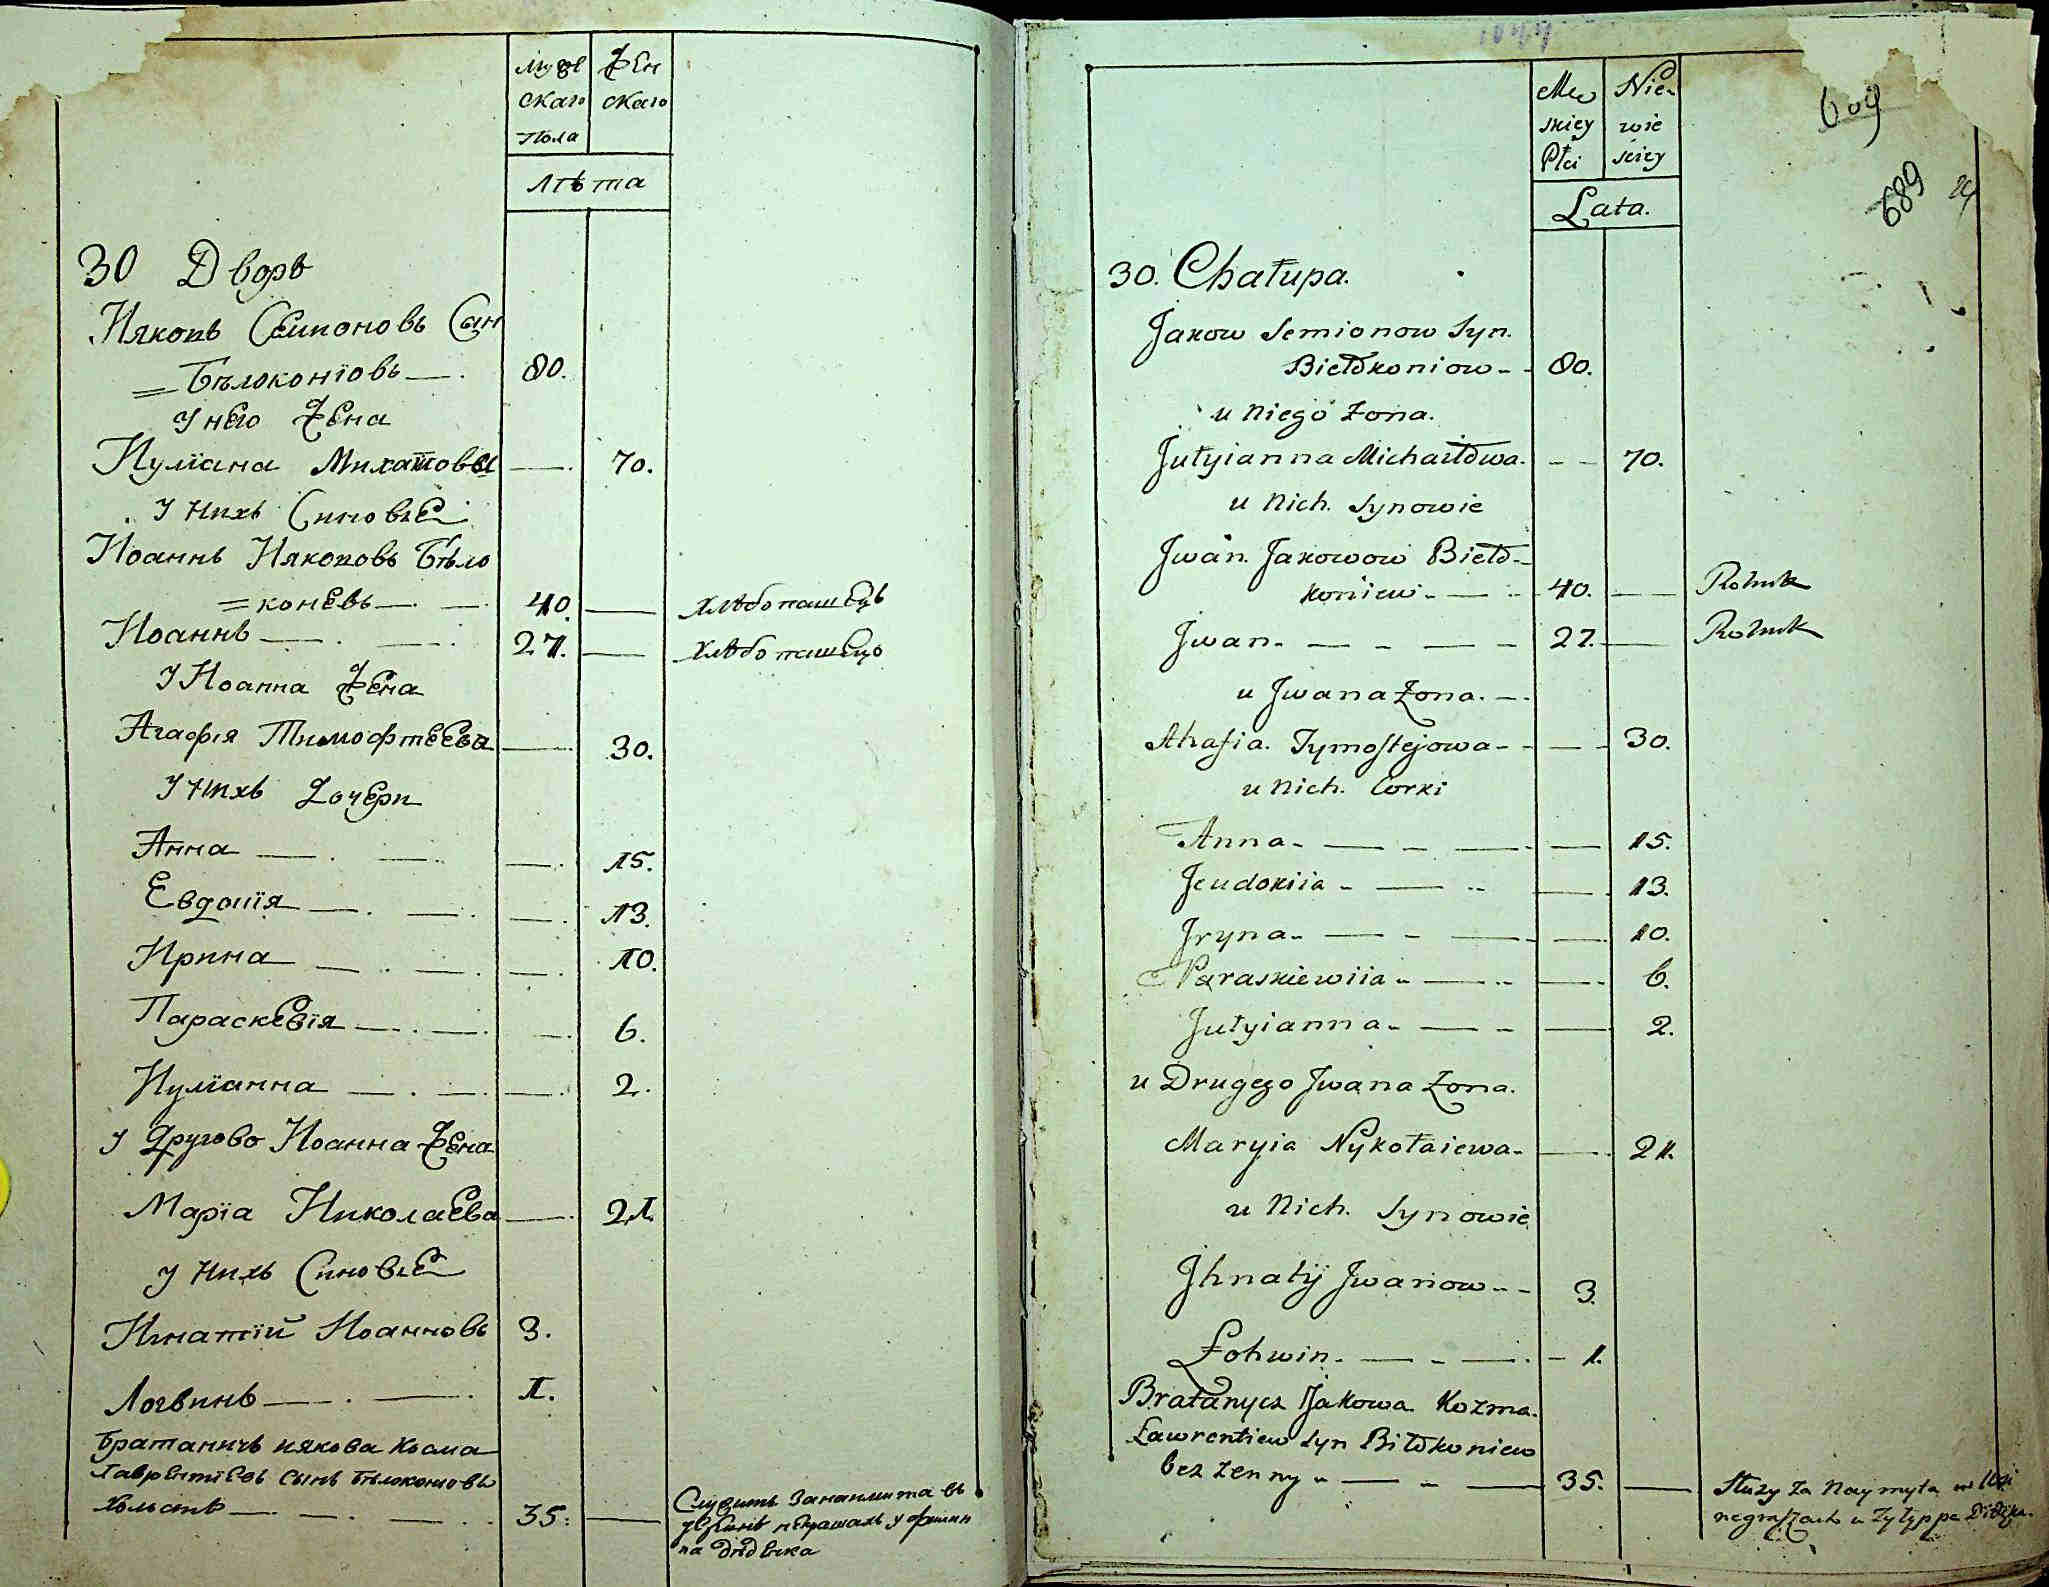 Мужескаго пола
Женскаго
Лѣта
30 Дворъ
Ияковъ Семионовъ Сын
=Бѣлоконїовъ — . 80.
У него Жена
Иулїана Михаилова — 70.
У нихъ Синовье
Иоаннъ Ияковов Бѣло
=коневъ — . — 40. — Хлѣбопашецъ
Иоаннъ — . — . 27. — Хлѣбопашецъ
У Иоанна Жена
Агафїя Тимофтеева — 30.
У нихъ Дочери
Анна — . — . — . 15.
Евдокїя — . — . — . 13.
Ирина — . — . — . 10.
Параскевїя — . — . — . 6.
Иулїанна — . — . — . 2.
У Другово Иоанна Жена
Марїа Николаева — . 21.
У нихъ Синовье
Игнатїй Иоанновъ 3.
Логвинъ — . — . 1.
Братаничъ иякова Козма
Лаврентїевъ Сынъ Бѣлоконїовъ
Холостъ — . — . — . 35. — Служитъ За наимита въ
у Филип
па Дѣденка
Męskiey Płci
Niewieściey
Lata.
609
689
30. Chałupa.
Jakow Semionow Syn.
Biełokoniow - - 80.
u Niego Żona.
Jułyianna Michaiłowa. - - 70.
u Nich. Synowie
Jwan. Jakowow Bieło-
koniew. - — - 40. — Rolnik
Jwan. — - — - 27. — Rolnik
u Jwana Żona. —.
Ahafia. Tymoftejowa - - — 30.
u Nich. Corki
Anna - — - — — 15.
Jeudokiia - — - — 13.
Jryna - — - — — 10.
Paraskiewiia - — - — 6.
Jułyianna - — - — 2.
u Drugego Jwana Żona.
Maryia Nykołaiewa - — 21.
u Nich. Synowie
Jhnatÿ Jwanow - - 3.
Łohwin. — - — . - 1.
Bratanycz Jakowa Kozma.
Ławrentiew Syn Biłokoniew
bez żenny - — - — 35. — Służy Za Naymyta w Wsi
negraszach u Fyłyppa Didenka.